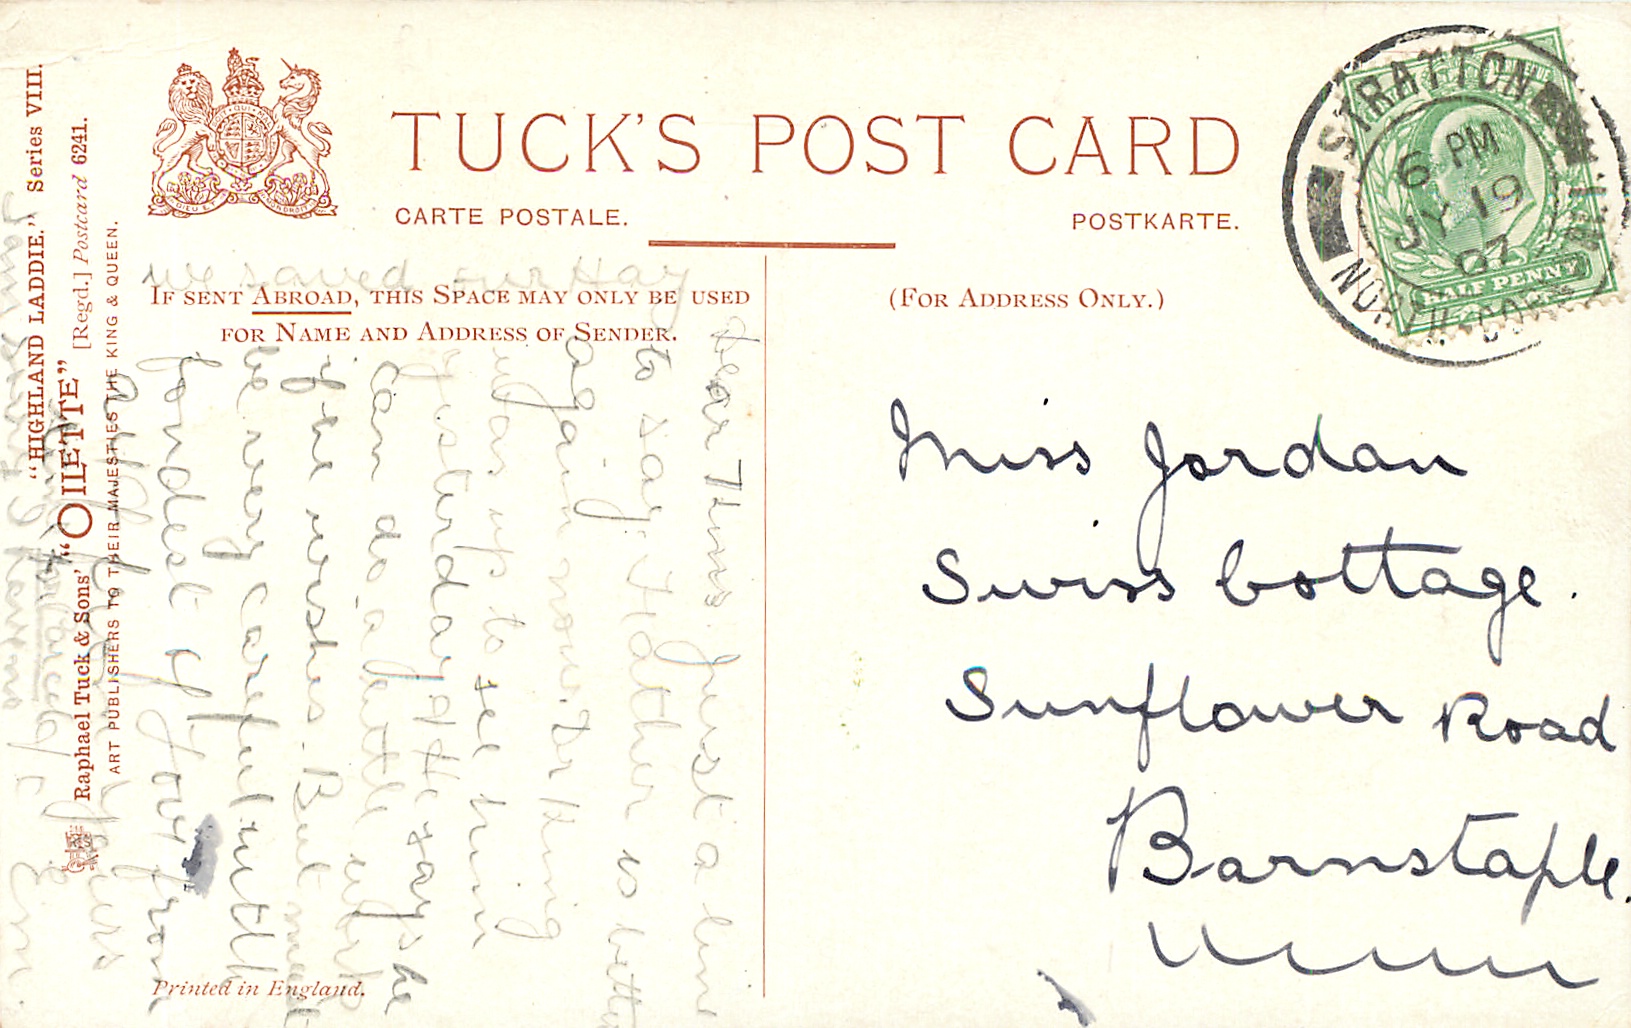 "HIGHLAND LADDIE." Series VIII.
Raphael Tuck & Sons' "OILETTE" [Regd.] Postcard 6241.
ART PUBLISHERS TO THEIR MAJESTIES THE KING & QUEEN.
TUCK'S POST CARD
CARTE POSTALE.
POSTKARTE.
we saved our Hay
IF SENT ABROAD, THIS SPACE MAY ONLY BE USED
FOR NAME AND ADDRESS OF SENDER.
(FOR ADDRESS ONLY.)
STRATTON
6 PM
JY 19
07
HALF PENNY
Miss Jordan
Swiss Cottage.
Sunflower Road
Barnstaple.
Dear Just a line
to say Father is better
again now. Dr King
was up to see him
yesterday & He says he
can do a little work
if he wishes. But must
be very careful with
fondest of love from
Printed in England.